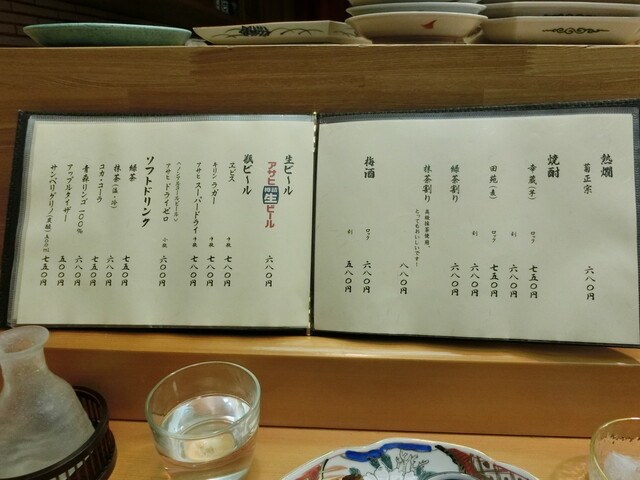 熱燗
菊正宗 六八〇円
焼酎
幸蔵(芋) ロック 七五〇円
割 六八〇円
田苑(麦) ロック 七五〇円
割 六八〇円
緑茶割り 六八〇円
抹茶割り 高級抹茶使用。 八八〇円
とってもおいしいです!
梅酒 ロック 六八〇円
割 五八〇円
生ビール
アサヒ 樽詰 生 ビール 六八〇円
瓶ビール
ヱビス 中瓶 七八〇円
キリン ラガー 中瓶 七八〇円
アサヒ スーパードライ 中瓶 七八〇円
ハノンアルコールビール>
アサヒ ドライゼロ 小瓶 六〇〇円
ソフトドリンク
緑茶 七五〇円
抹茶(温・冷) 六八〇円
コカ・コーラ 七五〇円
青森リンゴ100% 六八〇円
アップルタイザー 五〇〇円
サンペリグリノ(炭酸)500ml 七五〇円